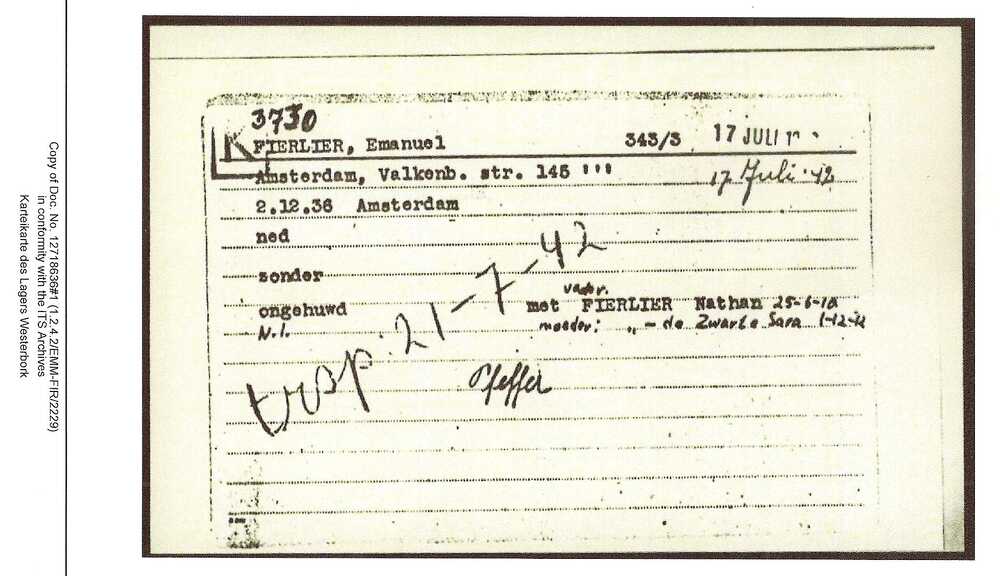 Copy of Doc. No. 12718636#1 (1.2.4.2/EMM-FIR/2229)
in conformity with the ITS Archives
Karteikarte des Lagers Westerbork
3730
K FIERLIER, Emanuel 343/3 17 JULI
Amsterdam, Valkenb. str. 145 ''' 17 Juli 42
2.12.36 Amsterdam
ned
zonder
ongehuwd met vader. FIERLIER Nathan 25-6-10
N.I. moeder: „ – de Zwarte Sara 1-12-12
trsp. 21-7-42
Pfeffer